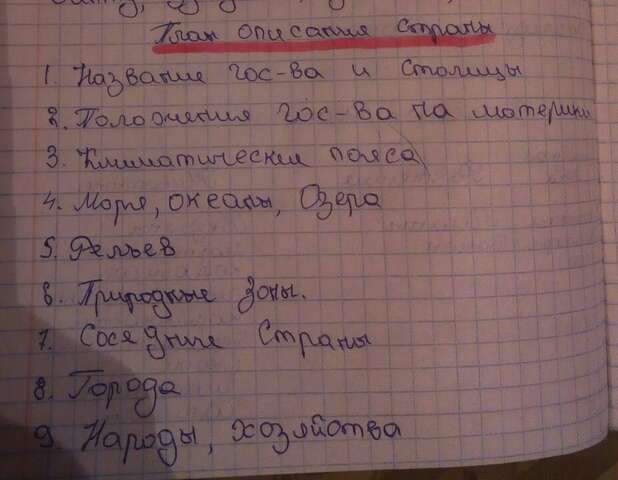 План описания страны
1. Название гос-ва и столицы
2. Положения гос-ва на материки
3. Климатические пояса
4. Моря, океаны, Озера
5. Рельев
6. Природные Зоны.
7. Соседние Страны
8. Города
9. Народы, хозяйства